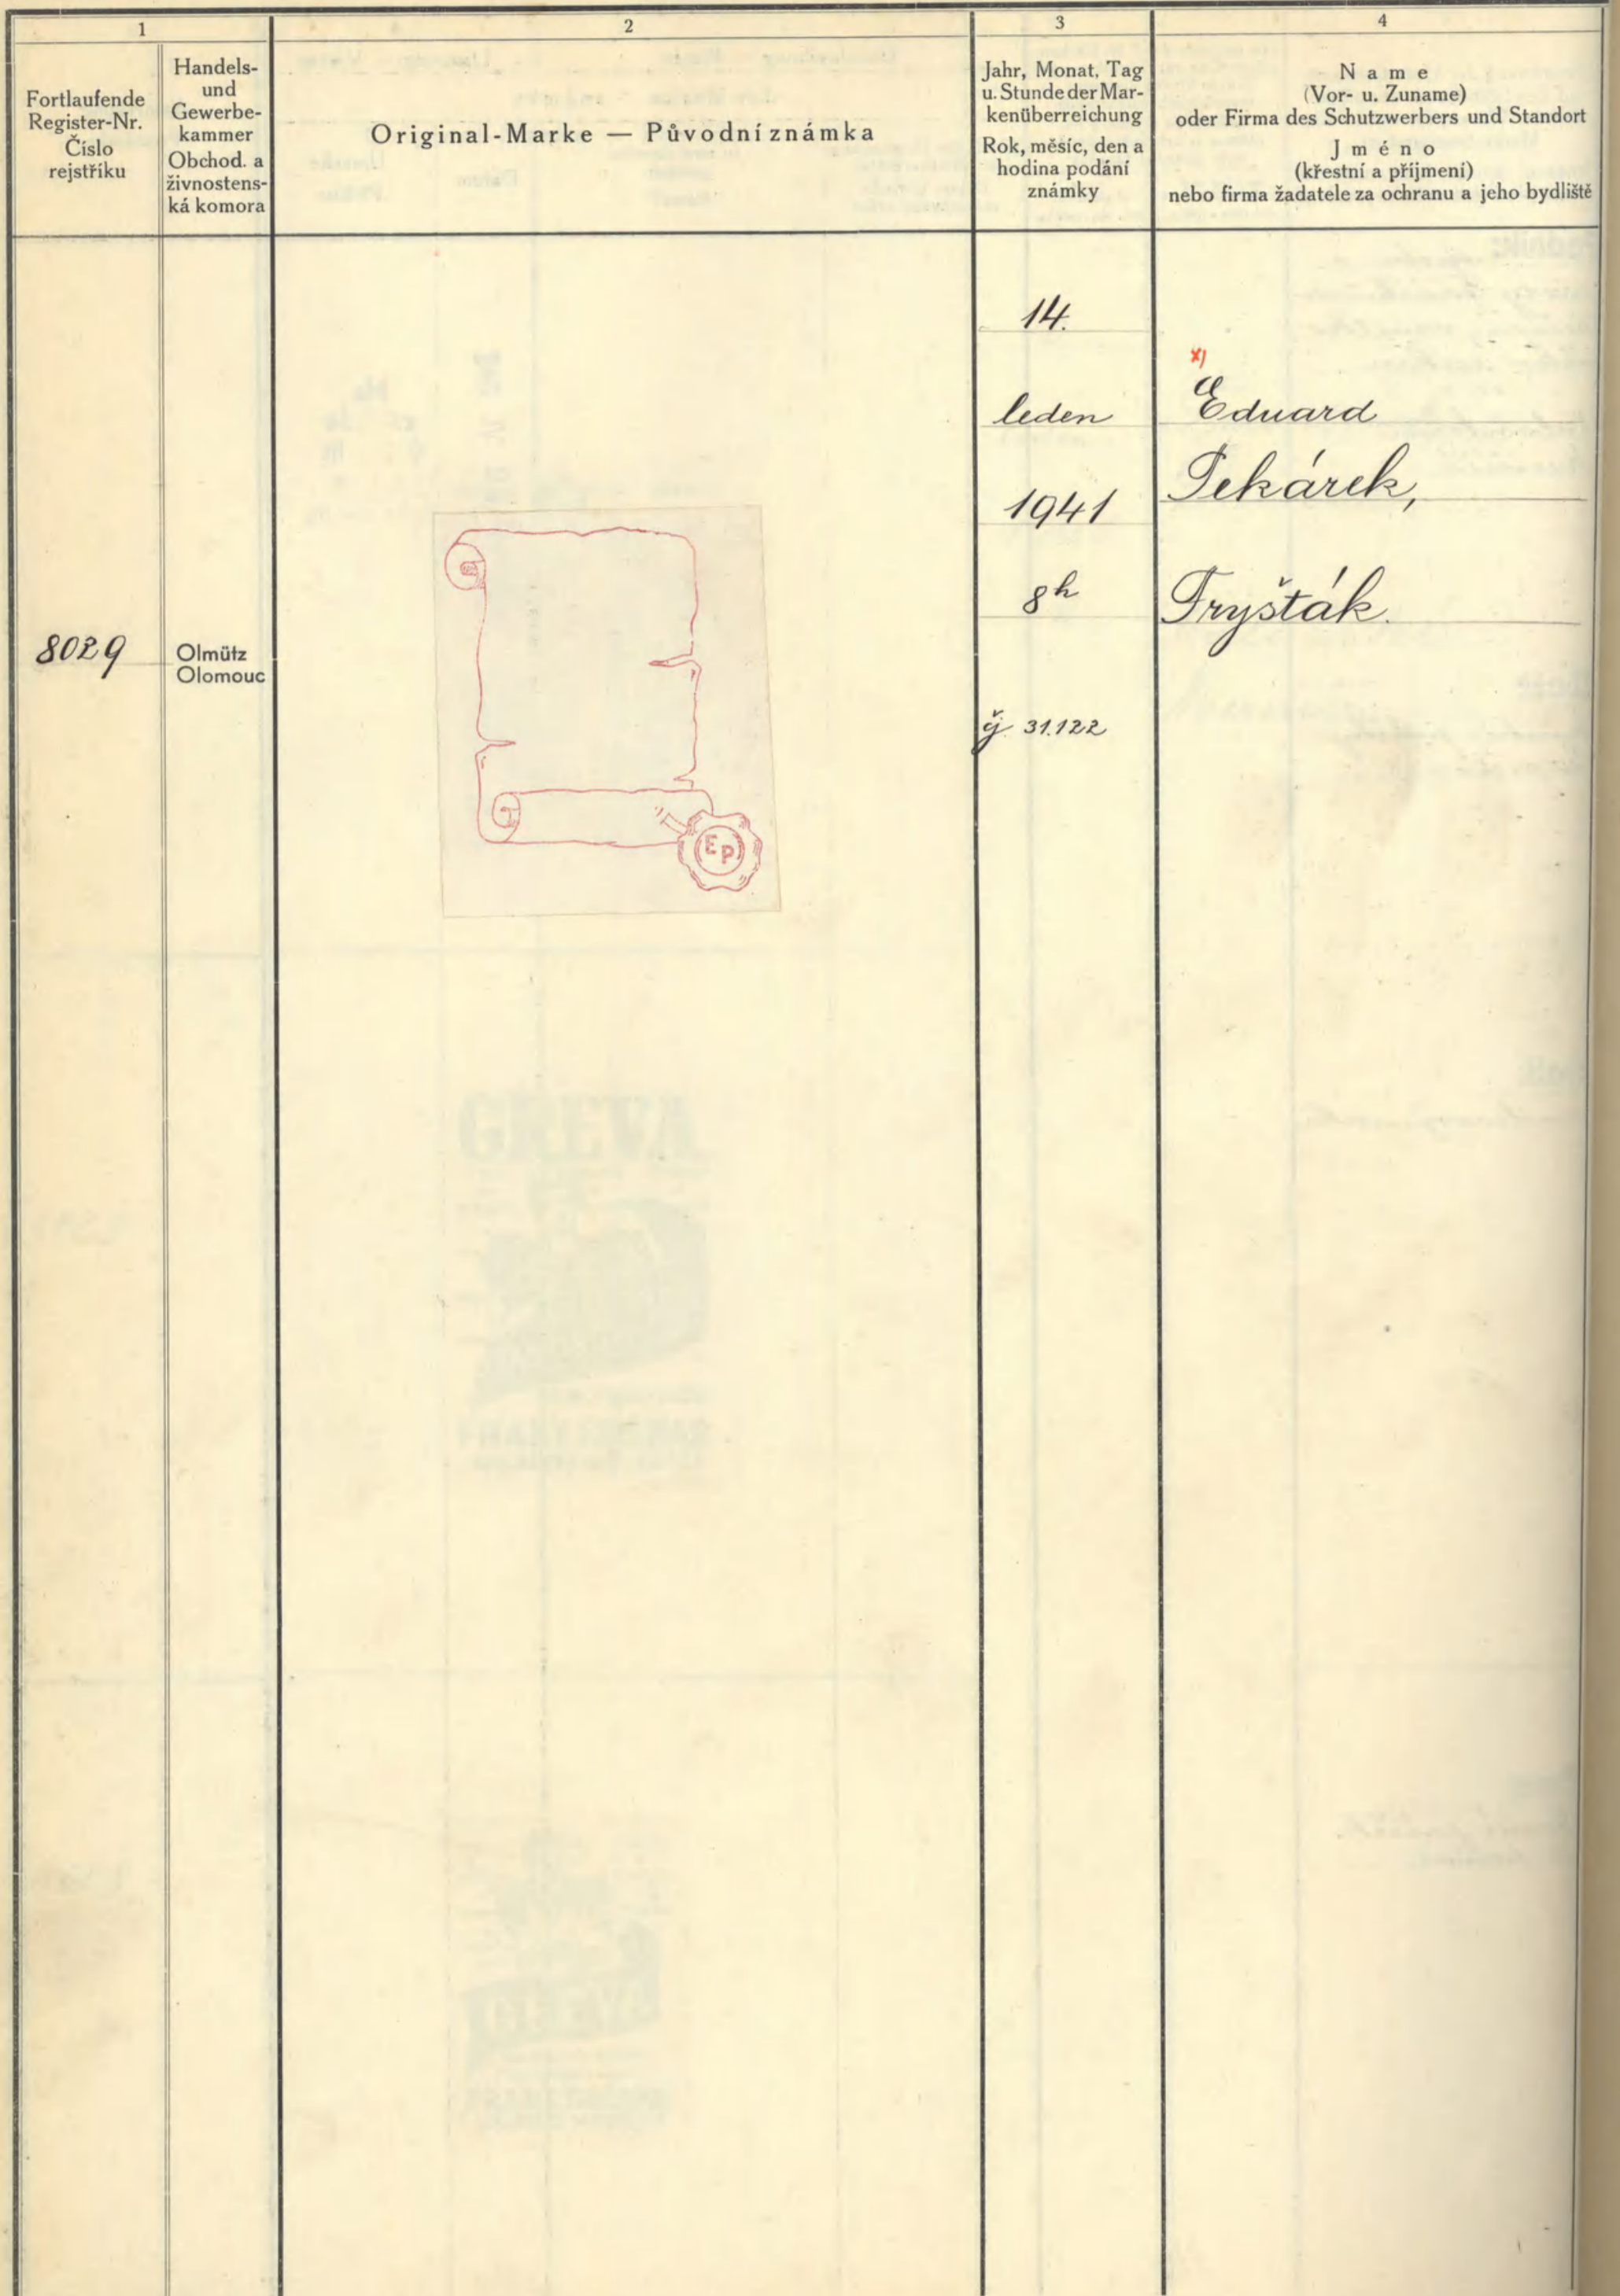 1
Fortlaufende
Register-Nr.
Číslo
rejstříku
Handels-
und
Gewerbe-
kammer
Obchod. a
živnostens-
ká komora
2
Original-Marke — Původní známka
3
Jahr, Monat, Tag
u. Stunde der Mar-
kenüberreichung
Rok, měsíc, den a
hodina podání
známky
4
Name
(Vor- u. Zuname)
oder Firma des Schutzwerbers und Standort
Jméno
(křestní a příjmení)
nebo firma žadatele za ochranu a jeho bydliště
8029
Olmütz
Olomouc
EP
14.
leden
1941
8h
čj 31.122
x)
Eduard
Pekárek,
Fryšták.